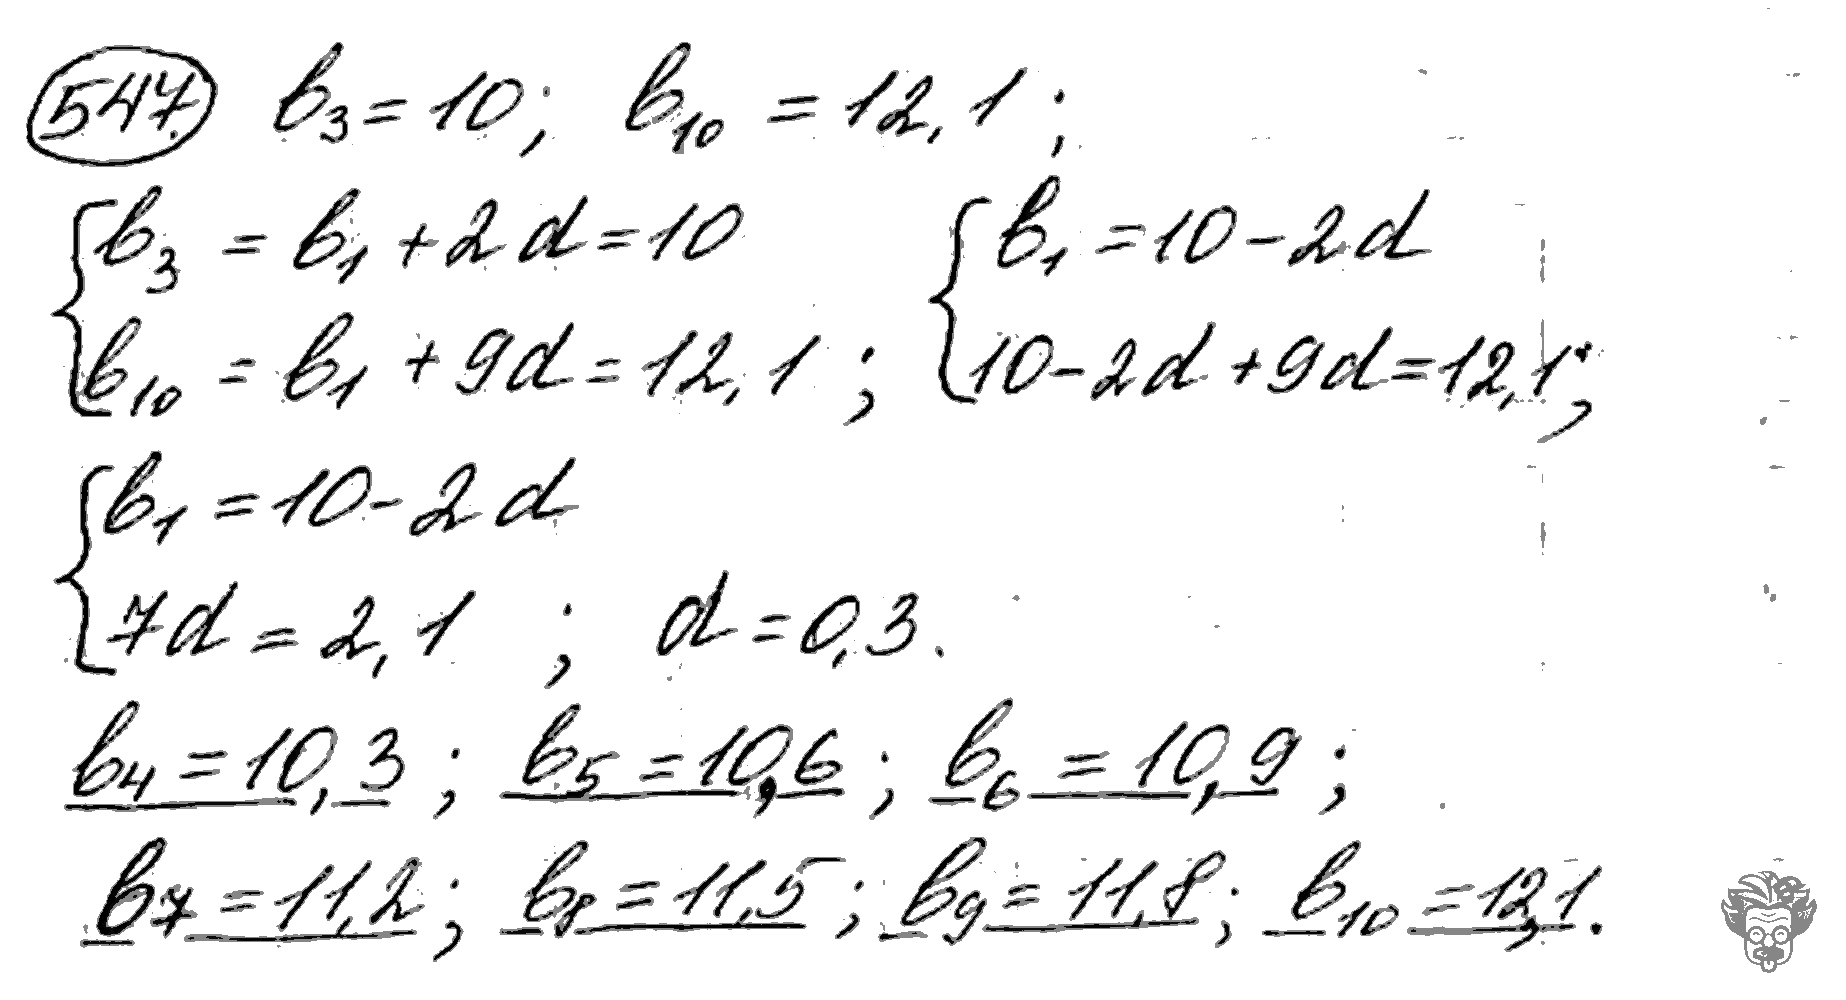 547. b₃ = 10; b₁₀ = 12,1;
{ b₃ = b₁ + 2d = 10 { b₁ = 10 - 2d
b₁₀ = b₁ + 9d = 12,1; 10 - 2d + 9d = 12,1;
{ b₁ = 10 - 2d
7d = 2,1; d = 0,3.
b₄ = 10,3; b₅ = 10,6; b₆ = 10,9;
b₇ = 11,2; b₈ = 11,5; b₉ = 11,8; b₁₀ = 12,1.